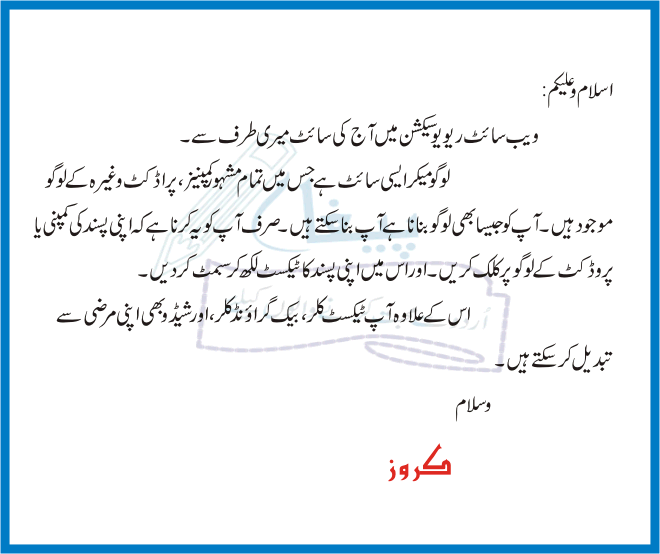 اسلام و علیکم:
ویب سائٹ ریویو سیکشن میں آج کی سائٹ میری طرف سے۔
لوگو میکر ایسی سائٹ ہے جس میں تمام مشہور کمپنیز، پراڈکٹ وغیرہ کے لوگو
موجود ہیں۔ آپ کو جیسا بھی لوگو بنانا ہے آپ بنا سکتے ہیں۔ صرف آپ کو یہ کرنا ہے کہ اپنی پسند کی کمپنی یا
پروڈکٹ کے لوگو پر کلک کریں۔ اور اس میں اپنی پسند کا ٹیکسٹ لکھ کر سمٹ کر دیں۔
اس کے علاوہ آپ ٹیکسٹ کلر، بیک گراؤنڈ کلر، اور شیڈو بھی اپنی مرضی سے
تبدیل کر سکتے ہیں۔
وسلام
کروز